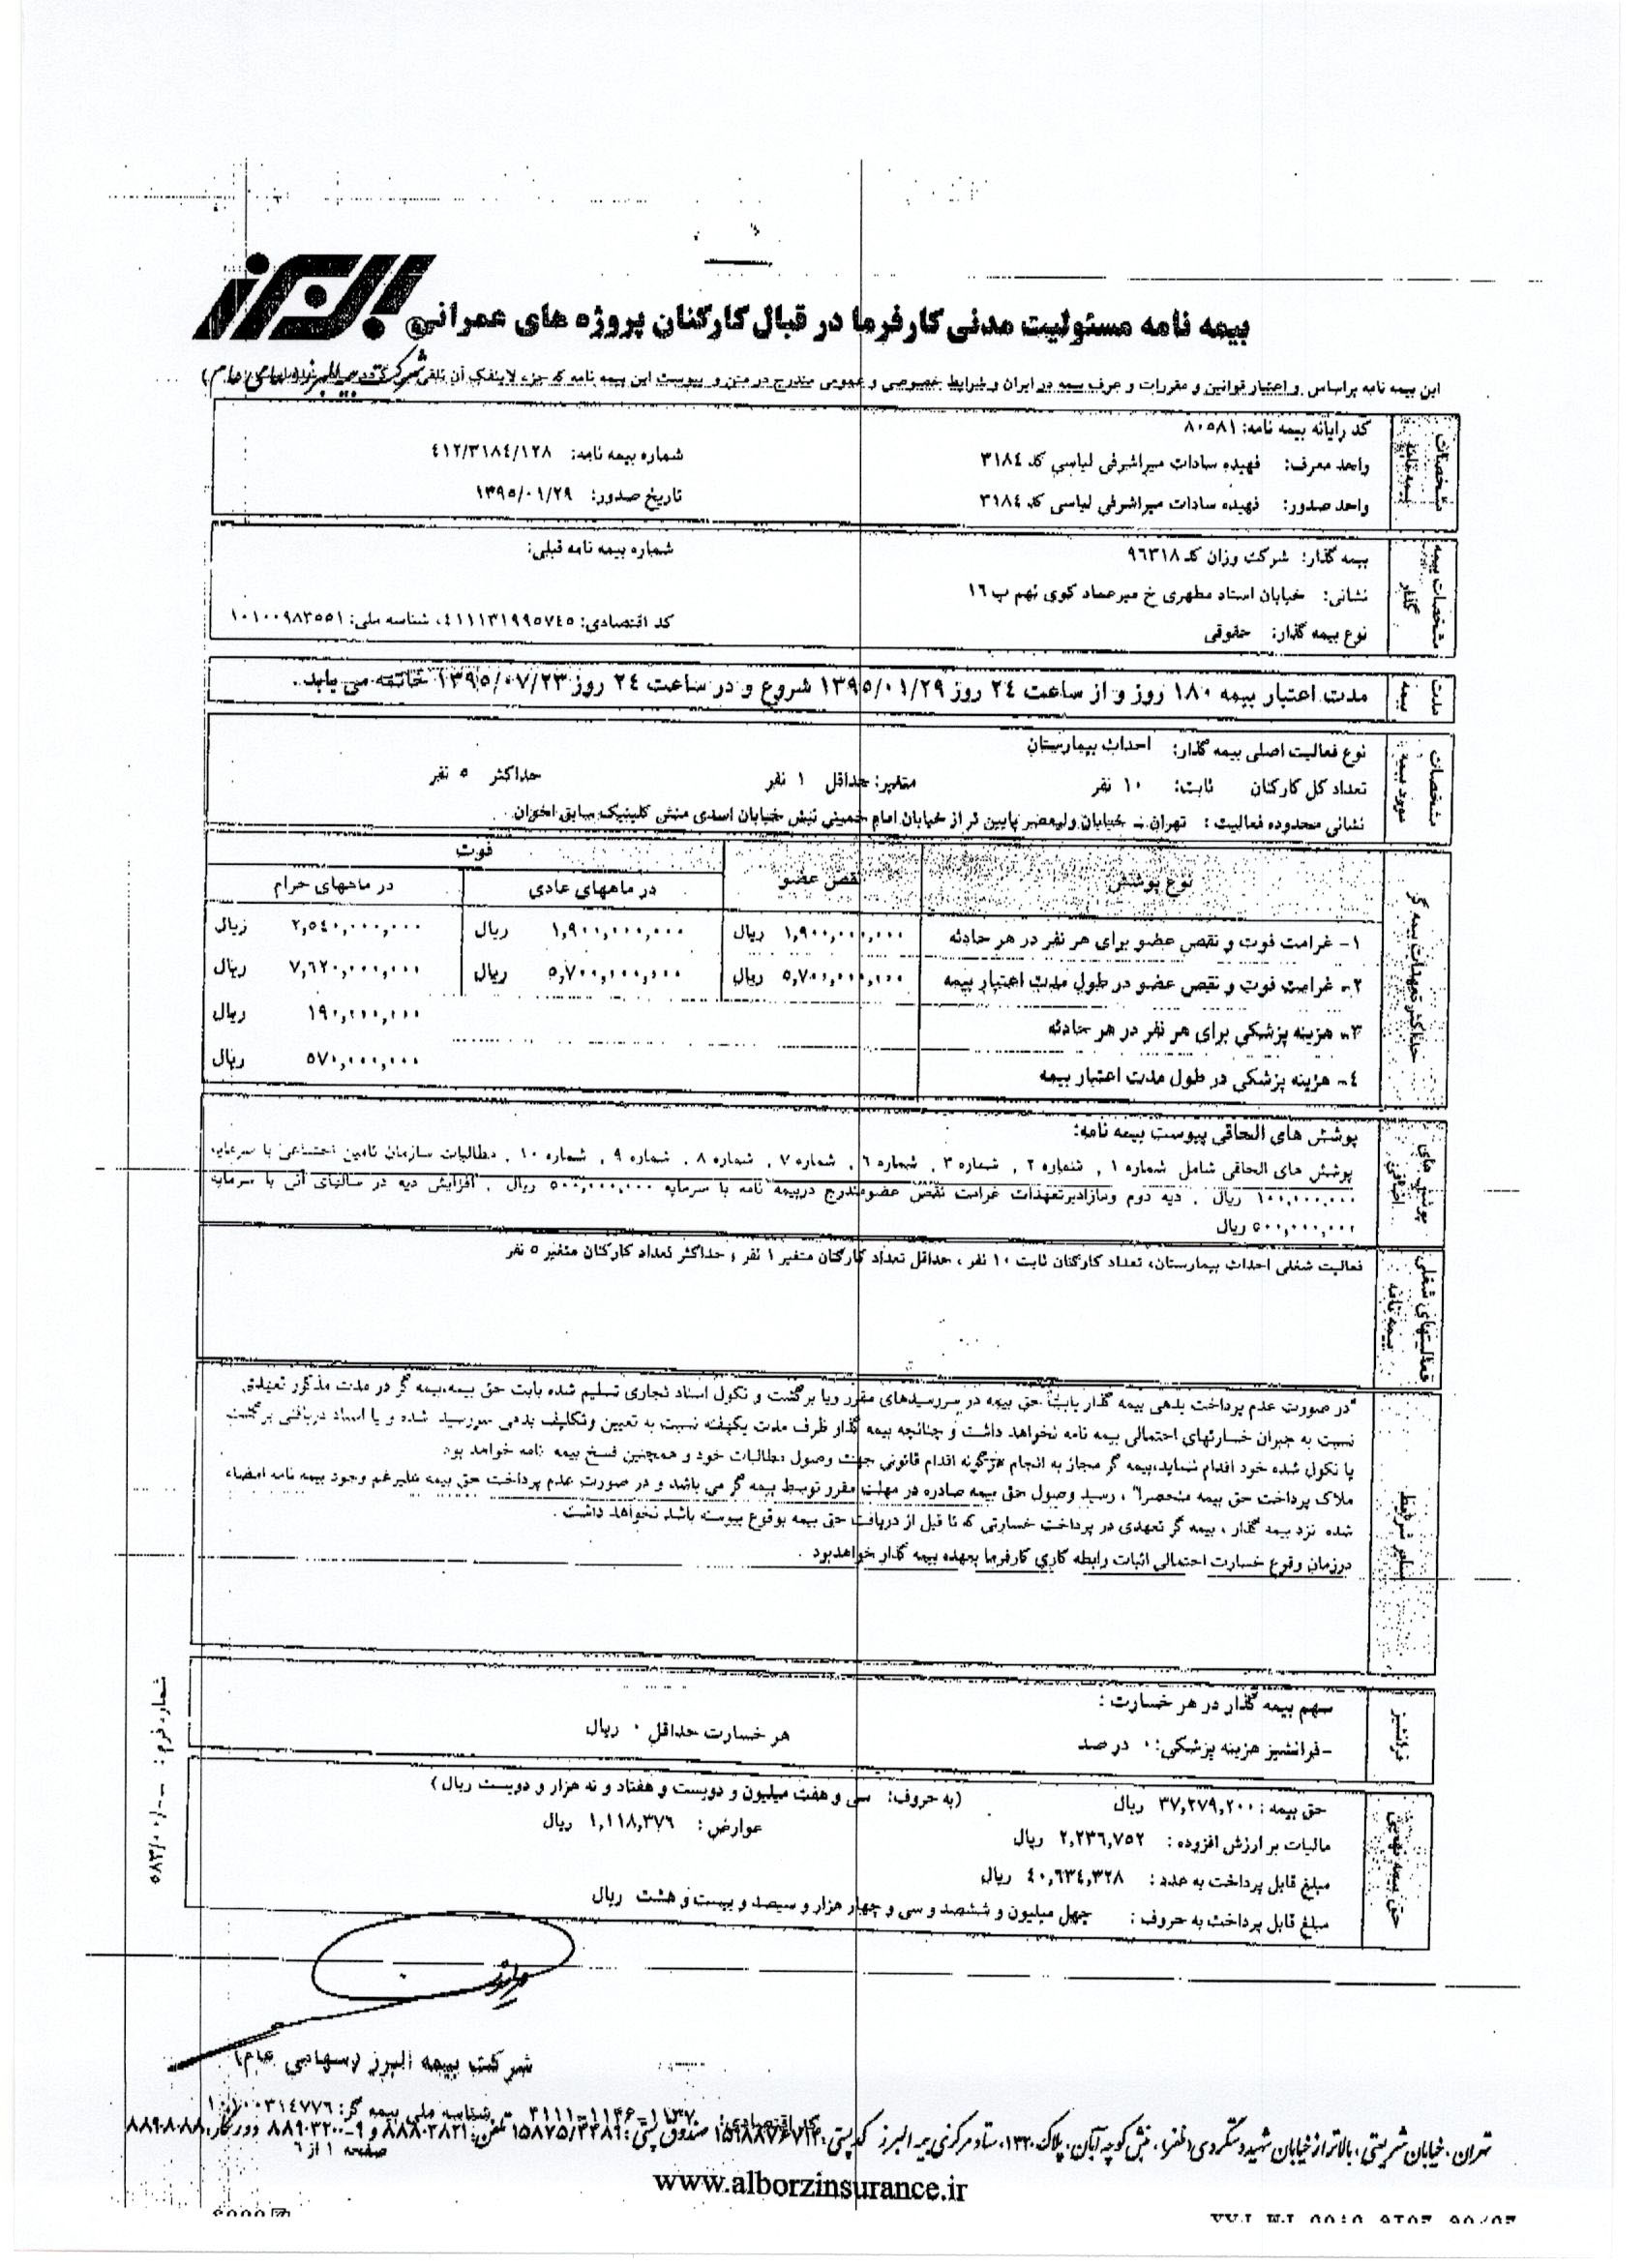 البرز
بیمه نامه مسئولیت مدنی کارفرما در قبال کارکنان پروژه های عمرانی
شرکت بیمه البرز (سهامی عام)
این بیمه نامه براساس و اعتبار قوانین و مقررات و عرف بیمه در ایران و شرایط خصوصی و عمومی مندرج در متن و پیوست این بیمه نامه که جزء لاینفک آن تلقی
مشخصات بیمه نامه
کد رایانه بیمه نامه: ۸۰۵۸۱
واحد معرف: فهیده سادات میراشرفی لیاسی کد ۳۱۸۴ شماره بیمه نامه: ۴۱۲/۳۱۸۴/۱۲۸
واحد صدور: فهیده سادات میراشرفی لیاسی کد ۳۱۸۴ تاریخ صدور: ۱۳۹۵/۰۱/۲۹
مشخصات بیمه گذار
بیمه گذار: شرکت وزان کد ۹۶۳۱۸ شماره بیمه نامه قبلی:
نشانی: خیابان استاد مطهری خ میرعماد کوی نهم پ ۱۶
نوع بیمه گذار: حقوقی کد اقتصادی: ۴۱۱۱۳۱۹۹۵۷۴۵، شناسه ملی: ۱۰۱۰۰۹۸۳۵۵۱
مدت بیمه
مدت اعتبار بیمه ۱۸۰ روز و از ساعت ۲۴ روز ۱۳۹۵/۰۱/۲۹ شروع و در ساعت ۲۴ روز ۱۳۹۵/۰۷/۲۳ خاتمه می یابد.
مشخصات مورد بیمه
نوع فعالیت اصلی بیمه گذار: احداث بیمارستان
تعداد کل کارکنان ثابت: ۱۰ نفر متغیر: حداقل ۱ نفر حداکثر ۵ نفر
نشانی محدوده فعالیت : تهران - خیابان ولیعصر پایین تر از خیابان امام خمینی نبش خیابان اسدی منش کلینیک سابق اخوان
حداکثر تعهدات بیمه گر
نوع پوشش نقص عضو فوت
در ماههای عادی در ماههای حرام
۱- غرامت فوت و نقص عضو برای هر نفر در هر حادثه ۱,۹۰۰,۰۰۰,۰۰۰ ریال ۱,۹۰۰,۰۰۰,۰۰۰ ریال ۲,۵۴۰,۰۰۰,۰۰۰ ریال
۲- غرامت فوت و نقص عضو در طول مدت اعتبار بیمه ۵,۷۰۰,۰۰۰,۰۰۰ ریال ۵,۷۰۰,۰۰۰,۰۰۰ ریال ۷,۶۲۰,۰۰۰,۰۰۰ ریال
۳- هزینه پزشکی برای هر نفر در هر حادثه ۱۹۰,۰۰۰,۰۰۰ ریال
۴- هزینه پزشکی در طول مدت اعتبار بیمه ۵۷۰,۰۰۰,۰۰۰ ریال
پوشش های اضافی
پوشش های الحاقی پیوست بیمه نامه:
پوشش های الحاقی شامل شماره ۱ , شماره ۲ , شماره ۳ , شماره ۶ , شماره ۷ , شماره ۸ , شماره ۹ , شماره ۱۰ , مطالبات سازمان تامین اجتماعی با سرمایه
۱۰۰,۰۰۰,۰۰۰ ریال , دیه دوم ومازادبرتعهدات غرامت نقص عضومندرج دربیمه نامه با سرمایه ۵۰۰,۰۰۰,۰۰۰ ریال , افزایش دیه در سالهای آتی با سرمایه
۵۰۰,۰۰۰,۰۰۰ ریال
فعالیتهای شغلی بیمه نامه
فعالیت شغلی احداث بیمارستان، تعداد کارکنان ثابت ۱۰ نفر ، حداقل تعداد کارکنان متغیر ۱ نفر ، حداکثر تعداد کارکنان متغیر ۵ نفر
سایر شرایط
"در صورت عدم پرداخت بدهی بیمه گذار بابت حق بیمه در سررسیدهای مقرر ویا برگشت و نکول اسناد تجاری تسلیم شده بابت حق بیمه،بیمه گر در مدت مذکور تعهدی
نسبت به جبران خسارتهای احتمالی بیمه نامه نخواهد داشت و چنانچه بیمه گذار ظرف مدت یکهفته نسبت به تعیین وتکلیف بدهی سررسید شده و یا اسناد دریافتی برگشت
یا نکول شده خود اقدام ننماید،بیمه گر مجاز به انجام هرگونه اقدام قانونی جهت وصول مطالبات خود و همچنین فسخ بیمه نامه خواهد بود
ملاک پرداخت حق بیمه منحصرا" ، رسید وصول حق بیمه صادره در مهلت مقرر توسط بیمه گر می باشد و در صورت عدم پرداخت حق بیمه علیرغم وجود بیمه نامه امضاء
شده نزد بیمه گذار ، بیمه گر تعهدی در پرداخت خسارتی که تا قبل از دریافت حق بیمه بوقوع پیوسته باشد نخواهد داشت .
درزمان وقوع خسارت احتمالی اثبات رابطه کاری کارفرما بعهده بیمه گذار خواهدبود .
فرانشیز
سهم بیمه گذار در هر خسارت :
-فرانشیز هزینه پزشکی: ۰ در صد هر خسارت حداقل ۰ ریال
حق بیمه
حق بیمه : ۳۷,۲۷۹,۲۰۰ ریال (به حروف: سی و هفت میلیون و دویست و هفتاد و نه هزار و دویست ریال )
مالیات بر ارزش افزوده : ۲,۲۳۶,۷۵۲ ریال عوارض : ۱,۱۱۸,۳۷۶ ریال
مبلغ قابل پرداخت به عدد : ۴۰,۶۳۴,۳۲۸ ریال
مبلغ قابل پرداخت به حروف : چهل میلیون و ششصد و سی و چهار هزار و سیصد و بیست و هشت ریال
شماره فرم :
شرکت بیمه البرز (سهامی عام)
شناسه ملی بیمه گر: ۱۰۱۰۰۳۱۴۷۷۶
تهران، خیابان شریعتی، بالاتر از خیابان شهید دستگردی (ظفر)، نبش کوچه آبان، پلاک ۱۳۲۰، ستاد مرکزی بیمه البرز کد پستی: صندوق پستی: تلفن: و ۹-۸۸۹۰۳۲۰۰ دورنگار:
صفحه ۱ از ۶
www.alborzinsurance.ir